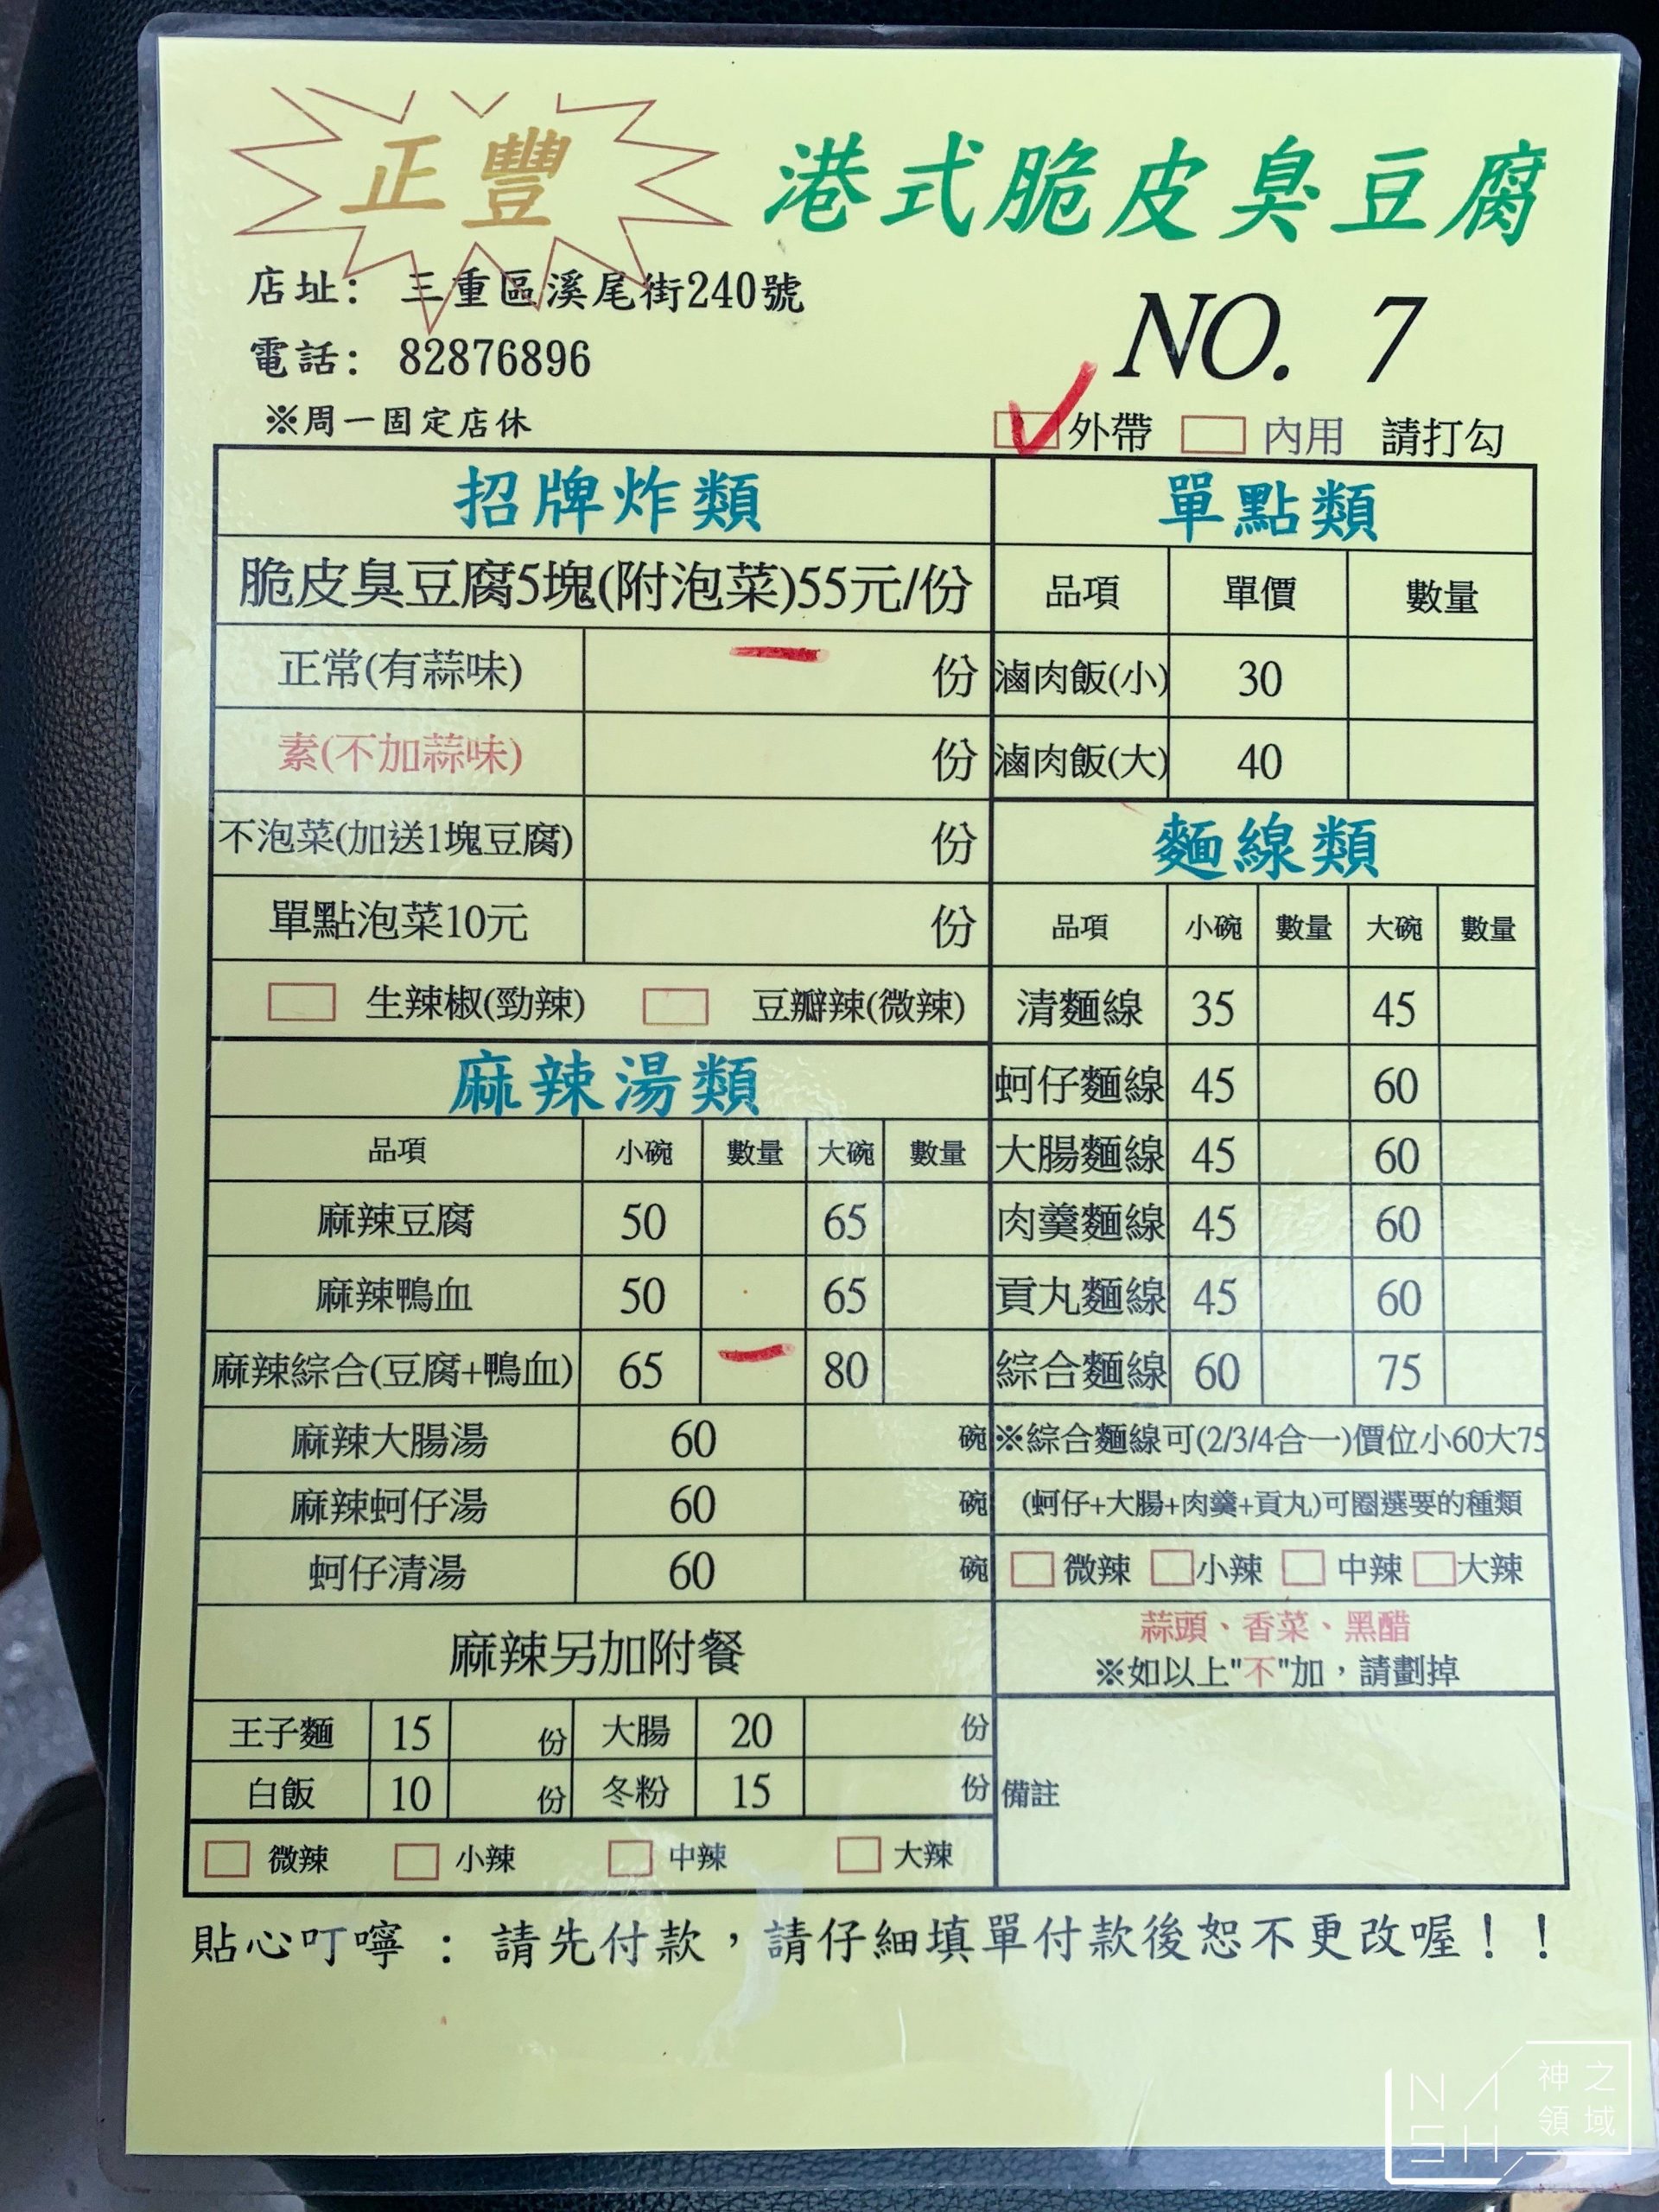 正豐 港式脆皮臭豆腐
店址: 三重區溪尾街240號
電話: 82876896
NO. 7
※周一固定店休
外帶 內用 請打勾
招牌炸類
脆皮臭豆腐5塊(附泡菜)55元/份
正常(有蒜味) 份
素(不加蒜味) 份
不泡菜(加送1塊豆腐) 份
單點泡菜10元 份
生辣椒(勁辣) 豆瓣辣(微辣)
麻辣湯類
品項 小碗 數量 大碗 數量
麻辣豆腐 50 65
麻辣鴨血 50 65
麻辣綜合(豆腐+鴨血) 65 80
麻辣大腸湯 60 碗
麻辣蚵仔湯 60 碗
蚵仔清湯 60 碗
麻辣另加附餐
王子麵 15 份 大腸 20 份
白飯 10 份 冬粉 15 份
微辣 小辣 中辣 大辣
單點類
品項 單價 數量
滷肉飯(小) 30
滷肉飯(大) 40
麵線類
品項 小碗 數量 大碗 數量
清麵線 35 45
蚵仔麵線 45 60
大腸麵線 45 60
肉羹麵線 45 60
貢丸麵線 45 60
綜合麵線 60 75
※綜合麵線可(2/3/4合一)價位小60大75
(蚵仔+大腸+肉羹+貢丸)可圈選要的種類
微辣 小辣 中辣 大辣
蒜頭、香菜、黑醋
※如以上"不"加，請劃掉
備註
貼心叮嚀 : 請先付款，請仔細填單付款後恕不更改喔！！
NASH
神之
領域